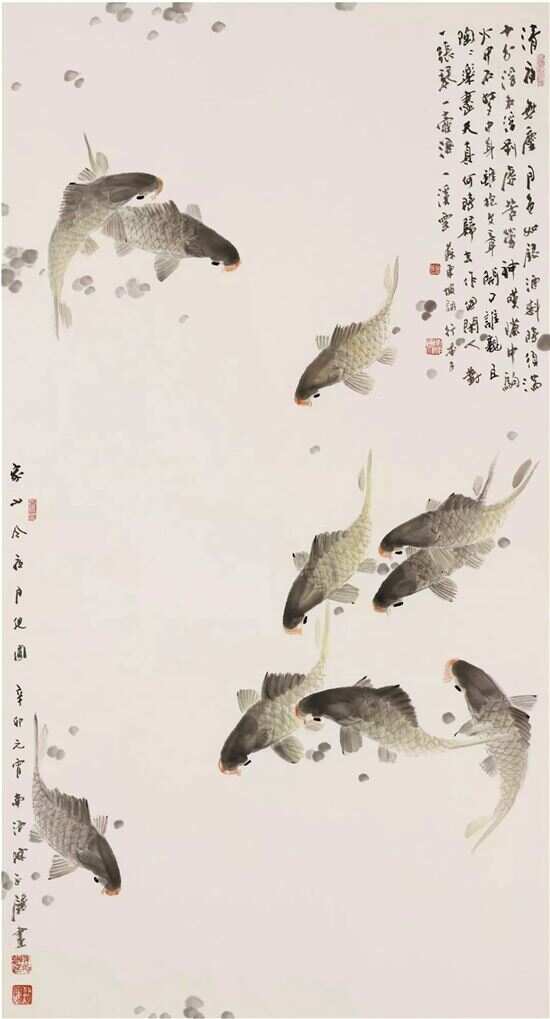 清夜無塵月色如銀酒斟時須滿
十分浮名浮利虛苦勞神嘆隙中駒
火中石夢中身雖抱文章開口誰親且
陶〻樂盡天真何時歸去作個閑人對
一張琴一壺酒一溪雲 蘇東坡詞行香子
家山今夜月 圓 辛卯元宵 畫